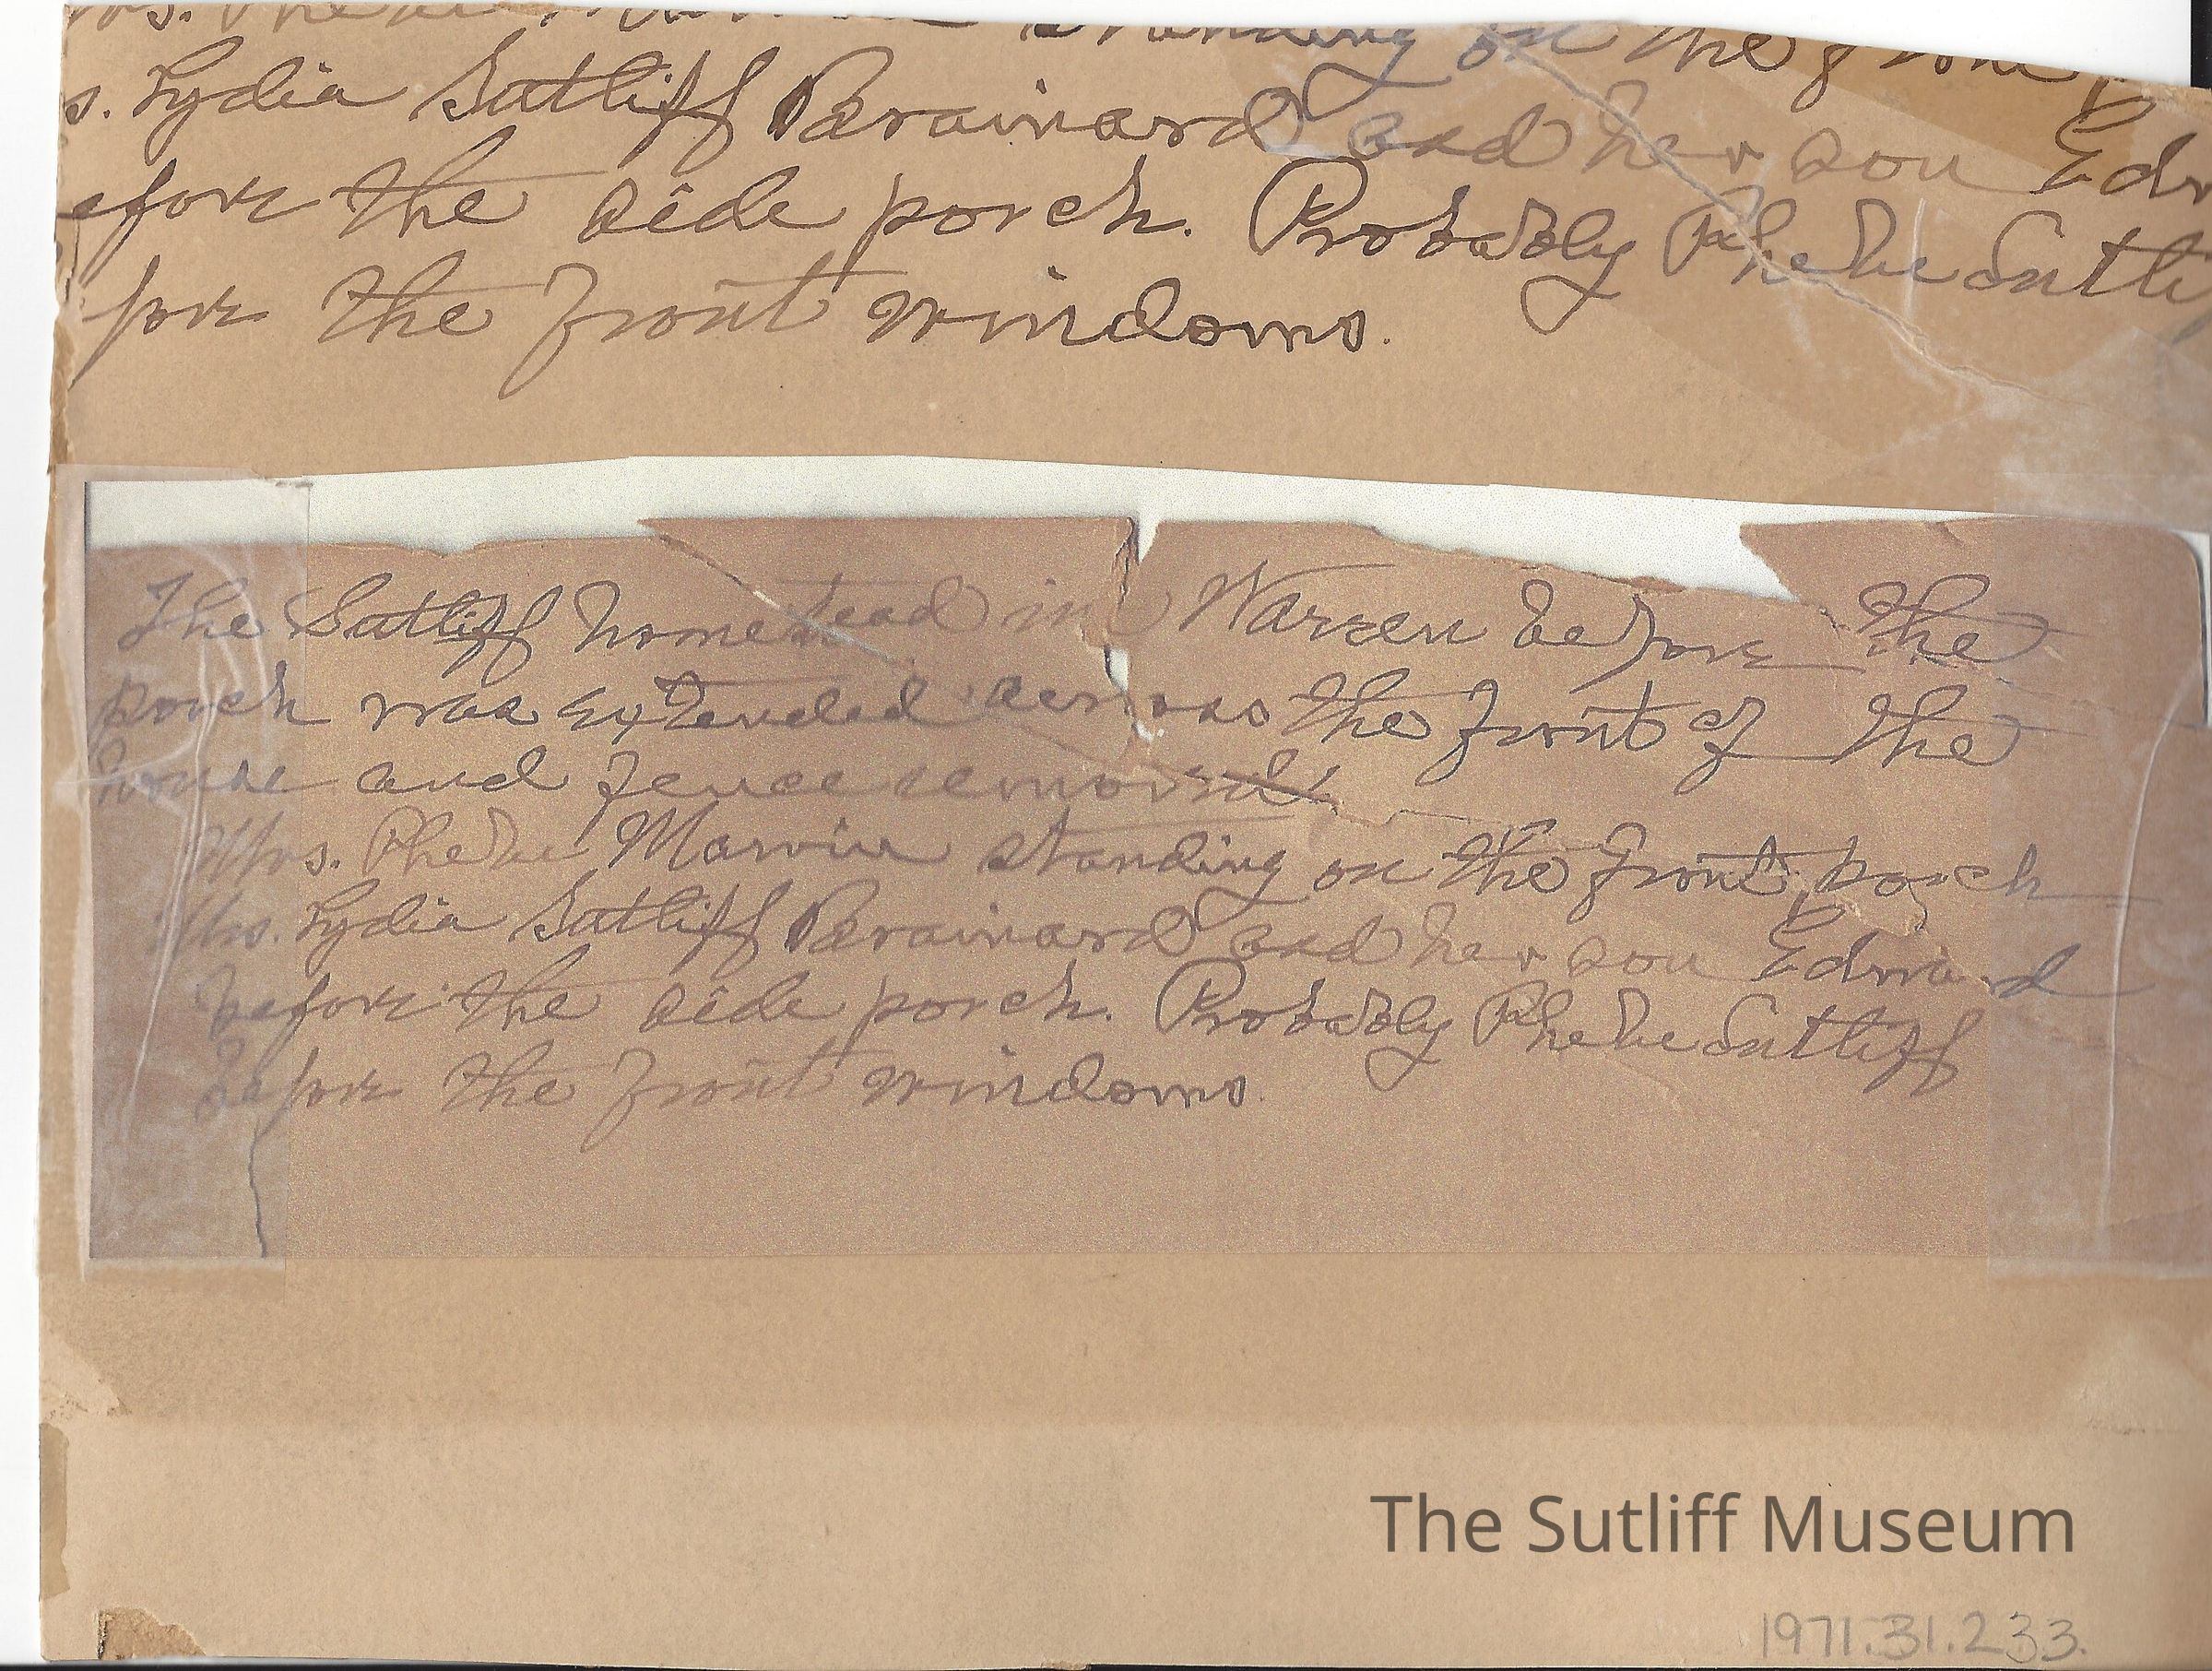 Mrs. Phebe Marvin standing on the front p
s. Lydia Sutliff Brainard and her son Edw
efore the side porch. Probably Phebe Sutli
fore the front windows.
The Sutliff homestead in Warren before the
porch was extended across the front of the
house and fence removed.
Mrs. Phebe Marvin standing on the front porch
Mrs. Lydia Sutliff Brainard and her son Edward
before the side porch. Probably Phebe Sutliff
before the front windows.
The Sutliff Museum
1971.31.233.